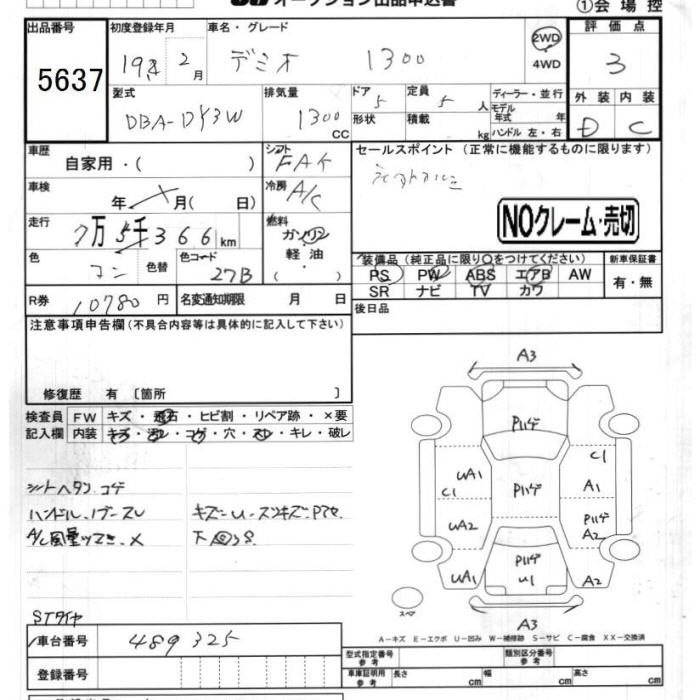 オークション出品申込書
①会場控
出品番号
5637
初度登録年月
19年 2月
車名・グレード
デミオ 1300
2WD
4WD
評価点
3
外装 内装
D C
型式
DBA-DY3W
排気量
1300 cc
ドア 5
形状
定員 5 人
積載 kg
ディーラー・並行
モデル年式 年
ハンドル 左・右
車歴
自家用・( )
シフト
FAT
セールスポイント (正常に機能するものに限ります)
社外アルミ
車検
年 月( 日)
冷房
A/C
NOクレーム・売切
走行
7万5千366km
燃料
ガソリン
軽油
( ・ )
色
コン
色替
色コード
27B
装備品(純正品に限り○をつけてください)
PS PW ABS エアB AW
SR ナビ TV カワ
新車保証書
有・無
R券 10780円
名変通知期限 月 日
後日品
注意事項申告欄(不具合内容等は具体的に記入して下さい)
修復歴 有 〔箇所 〕
検査員記入欄
FW キズ・飛石・ヒビ割・リペア跡・×要
内装 キズ・汚レ・コゲ・穴・スレ・キレ・破レ
シートヘタリ.コゲ
ハンドル.ノブ-スレ
キズ-U-スリキズ.
A/C風量
下回りS
STタイヤ
A3
Pハゲ
C1
UA1
C1
Pハゲ
A1
UA2
Pハゲ
A2
Pハゲ
U1
UA1
A2
スペア
A3
A-キズ E-エクボ U-凹み W-補修跡 S-サビ C-腐食 XX-交換済
車台番号
489325
登録番号
型式指定番号 参考
類別区分番号 参考
車庫証明用 参考
長さ cm
幅 cm
高さ cm